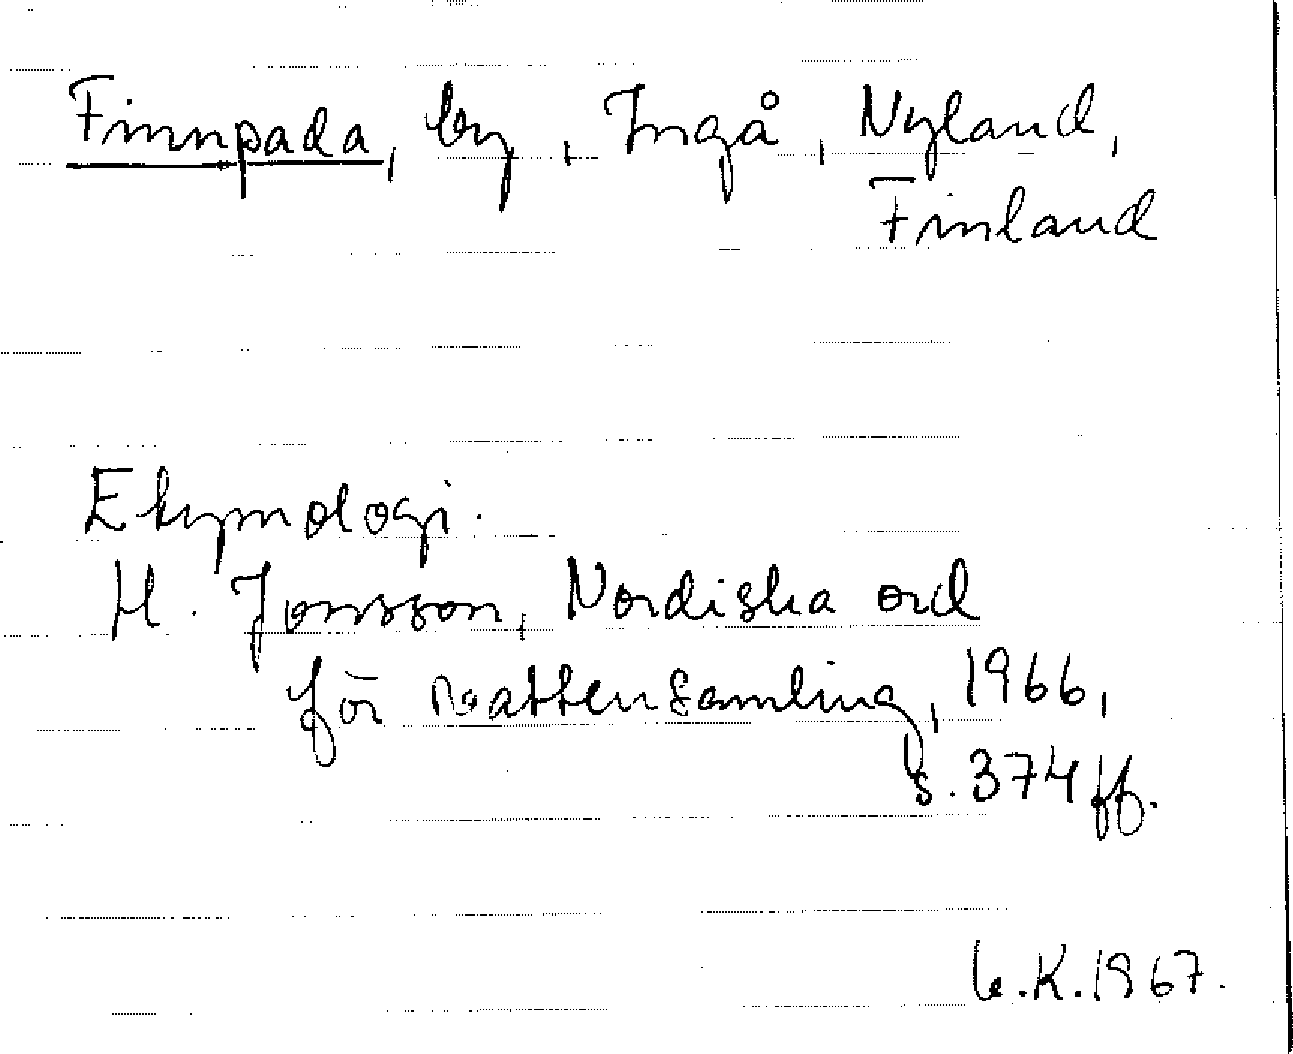 Finnpada, by, Ingå, Nyland,
Finland
Etymologi.
H. Jonsson, Nordiska ord
för vattensamling, 1966,
s. 374 ff.
K. 1967.